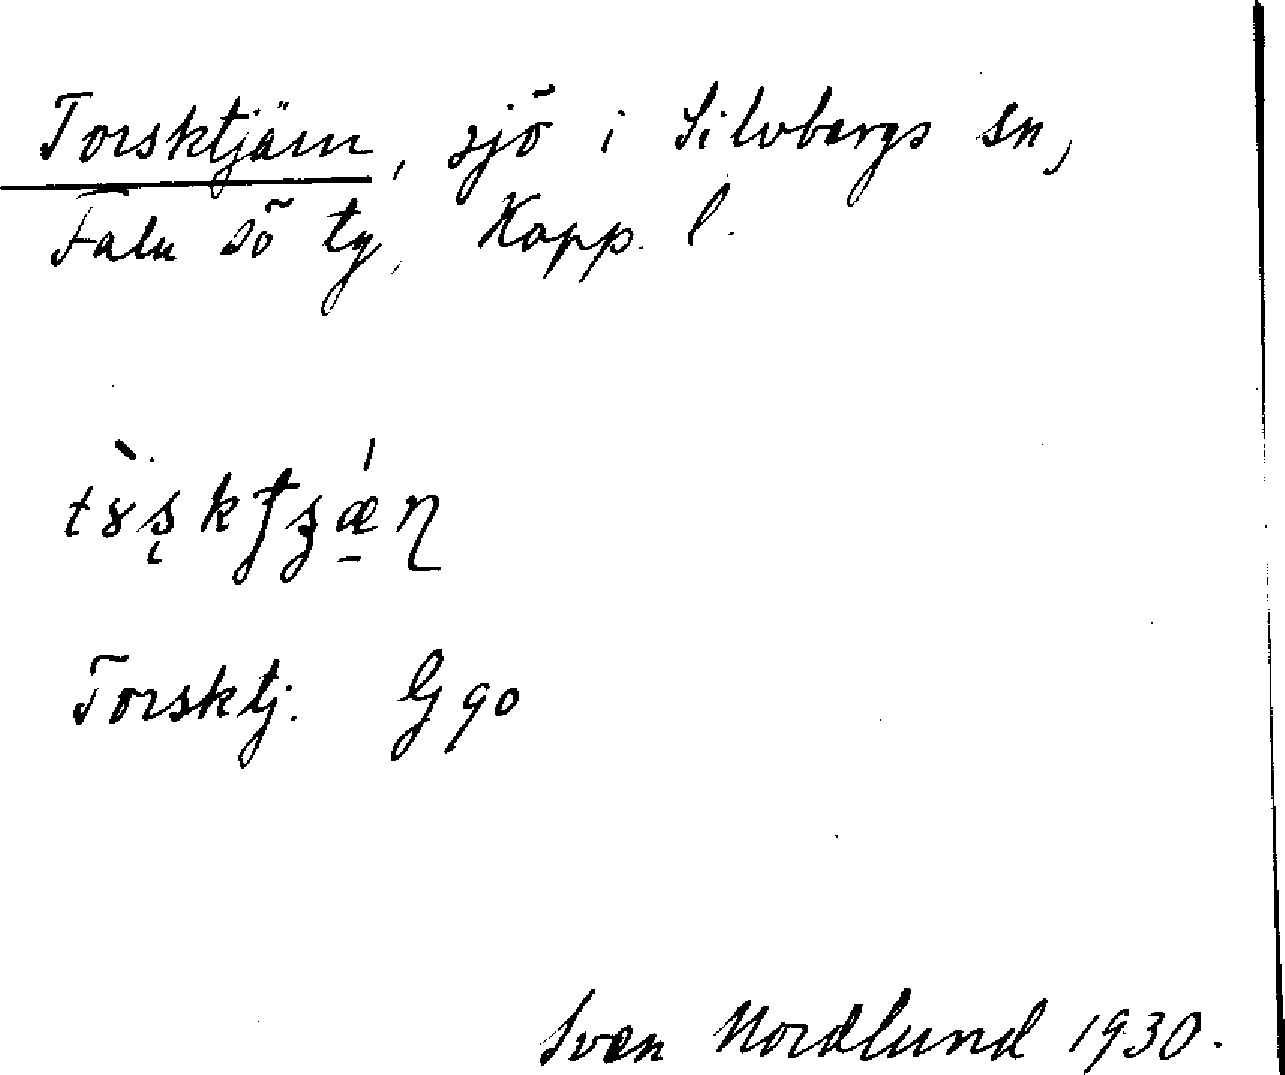 Torsktjärn, sjö i Silvbergs sn,
Falu sö tg, Kopp. l.
Torsktj. G 90
Sven Nordlund 1930.